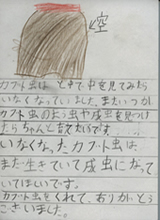 空
カブト虫は とやで中を見てみたら
いなくなっていました。またいつか
カブト虫のよう虫や成虫を見つけ
たらちゃんと
いなくなったカブト虫は、
まだ生きていて成虫になって
いてほしいです。
カブト虫をくれて、ありがとうご
ざいました。